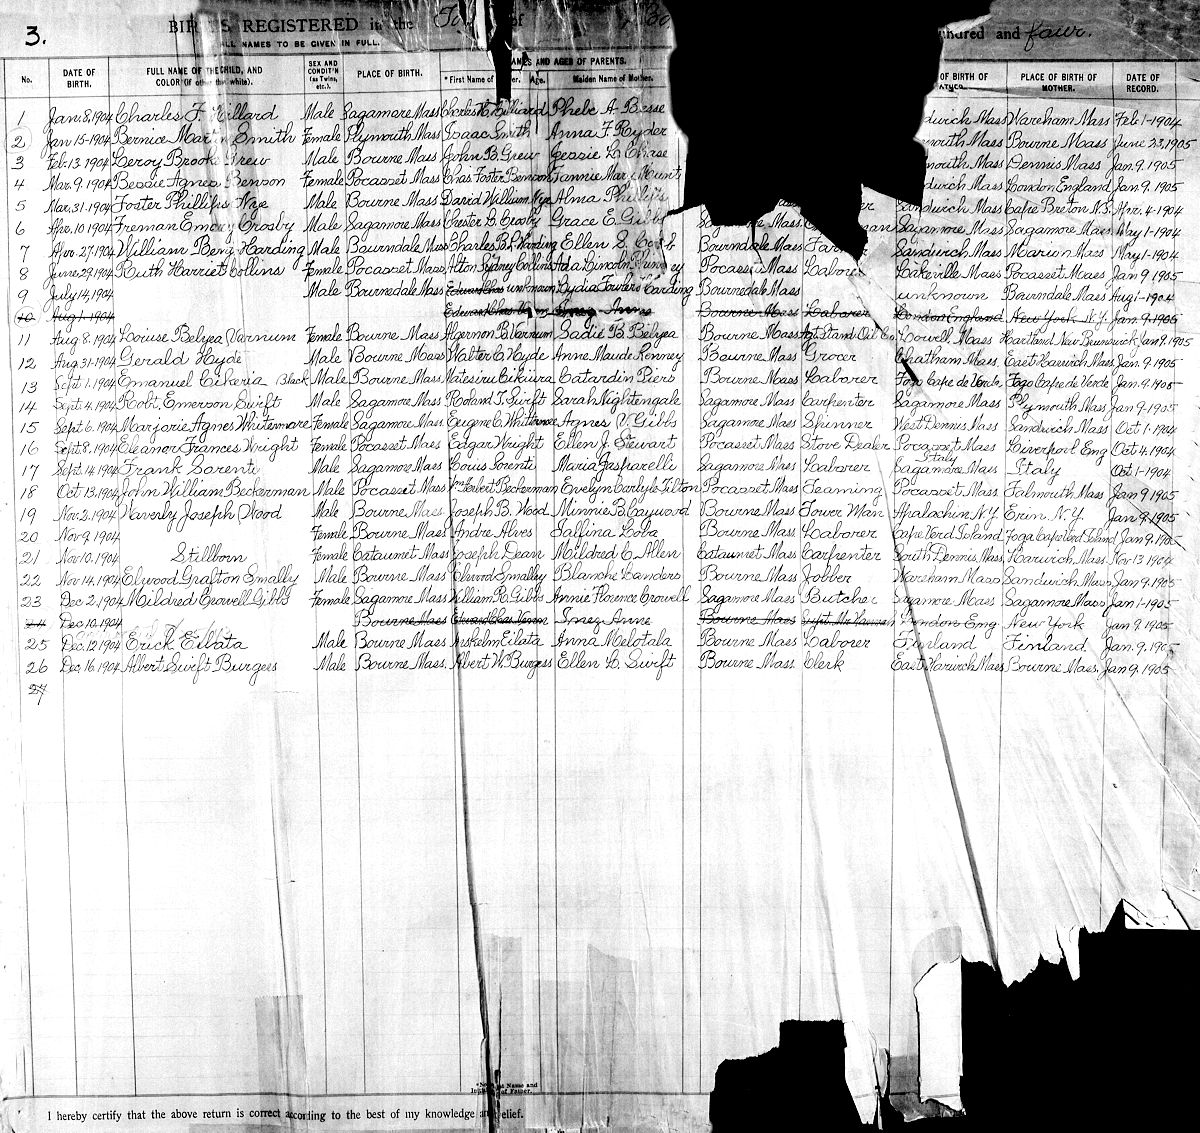 3.
BIRTHS REGISTERED in the Town of Bo hundred and four.
ALL NAMES TO BE GIVEN IN FULL.
NAMES AND AGES OF PARENTS.
No. DATE OF BIRTH. FULL NAME OF THE CHILD, AND COLOR (if other than white). SEX AND CONDIT'N (as Twins, etc.). PLACE OF BIRTH. *First Name of Father. Age. Maiden Name of Mother. OF BIRTH OF FATHER. PLACE OF BIRTH OF MOTHER. DATE OF RECORD.
1 Jan. 8, 1904 Charles F. Hillard Male Sagamore Mass Charles H. Hilliard Phebe A. Besse dwich Mass Wareham Mass Feb. 1-1904
2 Jan 15-1904 Bernice Smith Female Plymouth Mass Isaac Smith Anna F. Ryder mouth Mass Bourne Mass June 23, 1905
3 Feb. 13 1904 Leroy Brook Grew Male Bourne Mass John B. Grew Jessie L. Chase mouth Mass Dennis Mass Jan. 9. 1905
4 Mar. 9. 1904 Bessie Agnes Benson Female Pocasset Mass Chas. Foster Benson Fannie Mar dwich Mass London England Jan 9. 1905
5 Mar. 31-1904 Foster Phillips Nye Male Bourne Mass David William Nye Alma Phillips Sandwich Mass Cape Breton N.S. Apr. 4-1904
6 Apr. 10 1904 Freman Emory Crosby Male Sagamore Mass Chester L. Crosby Grace E. Gibbs Sagamore Mass Sagamore Mass May 1-1904
7 Apr. 27. 1904 William Benj Harding Male Bourndale Mass Charles B. Harding Ellen S. Cobb Bourndale Mass Far Sandwich Mass Marion Mass May 1-1904
8 June 29. 1904 Ruth Harriet Collins Female Pocasset Mass. Alton Sydney Collins Ada Lincoln Phinney Pocasset Mass Laborer Lakeville Mass Pocasset Mass Jan 9 1905
9 July 14, 1904 Male Bournedale Mass unknown Lydia Harding Bournedale Mass unknown Bourndale Mass Aug 1-1904
10 Aug 1-1904 Inez Anne Bourne Mass Laborer London England New York N.Y. Jan. 9. 1905
11 Aug 8, 1904 Louise Belyea Varnum Female Bourne Mass Algernon B. Varnum Sadie B. Belyea Bourne Mass Agt Stand Oil Co. Lowell Mass Hartland New Brunswick Jan. 9. 1905
12 Aug. 31-1904 Gerald Hyde Male Bourne Mass Walter C. Hyde Anne Maude Kenney Bourne Mass Grocer Chatham Mass. East Harwich Mass Jan. 9. 1905
13 Sept. 1. 1904 Emanuel Black Male Bourne Mass Catardin Piers Bourne Mass Laborer Fogo Cape de Verde Fogo Cape de Verde Jan. 9. 1905
14 Sept. 4. 1904 Robt. Emerson Swift Male Sagamore Mass Roland T. Swift Sarah Nightengale Sagamore Mass Carpenter Sagamore Mass Plymouth Mass Jan. 9. 1905
15 Sept. 6. 1904 Marjorie Agnes Whitemore Female Sagamore Mass Eugene C. Whittemore Agnes V. Gibbs Sagamore Mass Shinner West Dennis Mass Sandwich Mass Oct 1-1904
16 Sept 8. 1904 Eleanor Frances Wright Female Pocasset Mass Edgar Wright Ellen J. Stewart Pocasset Mass Stove Dealer Pocasset Mass Liverpool Eng Oct 4. 1904
17 Sept. 14. 1904 Frank Sorenti Male Sagamore Mass Louis Sorenti Maria Gasparelli Sagamore Mass Laborer Italy Sagamore Mass Italy Oct 1-1904
18 Oct 13. 1904 John William Beckerman Male Pocasset Mass Wm Herbert Beckerman Evelyn Carlyle Tilton Pocasset Mass Teaming Pocasset Mass Falmouth Mass Jan 9 1905
19 Nov. 2. 1904 Waverly Joseph Wood Male Bourne Mass. Joseph B. Wood Minnie B. Cayward Bourne Mass Tower Man Apalachin N.Y. Erin N.Y. Jan 9. 1905
20 Nov 9. 1904 Female Bourne Mass Andre Alves Loba Bourne Mass Laborer Cape Verd Island Foga Cape Verd Island Jan 9. 1905
21 Nov 10. 1904 Stillborn Female Cataumet Mass Joseph Dean Mildred C. Allen Cataumet Mass Carpenter South Dennis Mass Harwich Mass Nov 13 1904
22 Nov 14. 1904 Elwood Grafton Smally Male Bourne Mass Elwood Smalley Blanche Landers Bourne Mass Jobber Wareham Mass Sandwich Mass Jan 9. 1905
23 Dec 2. 1904 Mildred Crowell Gibbs Female Sagamore Mass William R. Gibbs Annie Florence Crowell Sagamore Mass Butcher Sagamore Mass Sagamore Mass Jan 1-1905
24 Dec 10. 1904 Bourne Mass Inez Anne Bourne Mass London Eng New York Jan 9. 1905
25 Dec. 12 1904 Erick Eilata Male Bourne Mass Eilata Anna Melotala Bourne Mass Laborer Finland Finland Jan. 9. 1905
26 Dec. 16. 1904 Albert Swift Burgess Male Bourne Mass. Albert W. Burgess Ellen L. Swift Bourne Mass. Clerk East Harwich Mass Bourne Mass. Jan 9. 1905
27
*Not Name and
of Father.
I hereby certify that the above return is correct according to the best of my knowledge and belief.